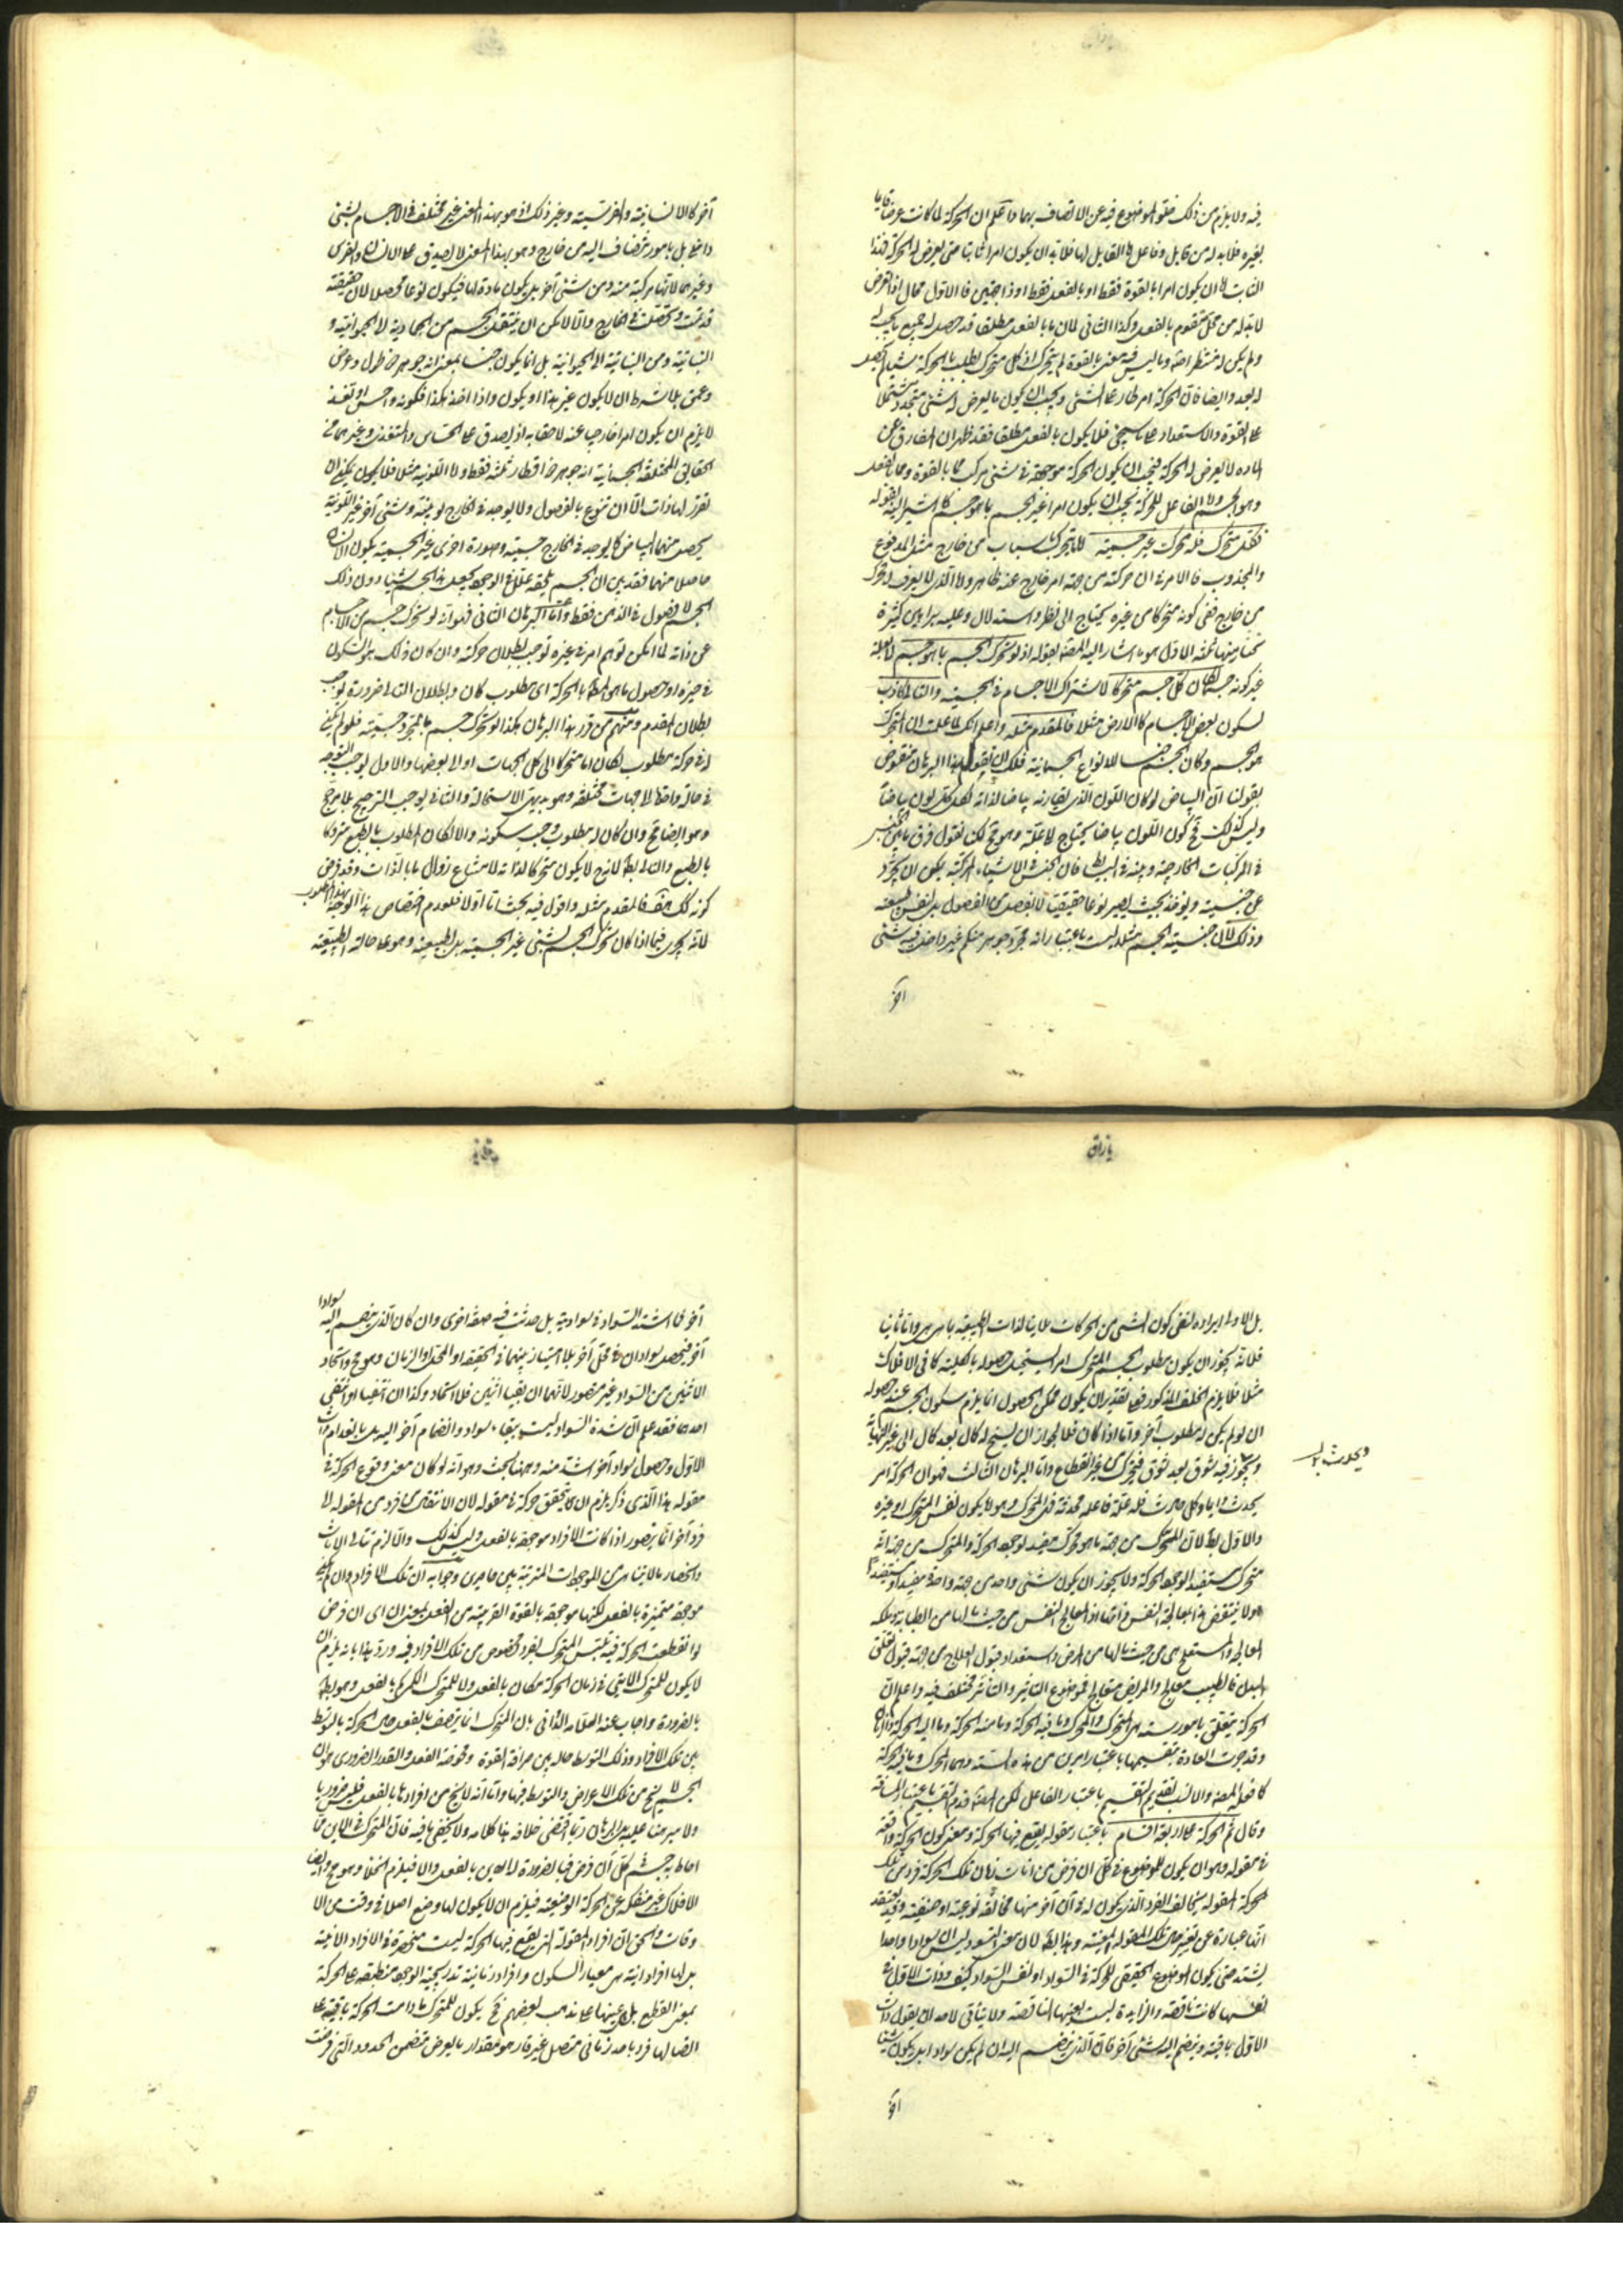 فيه ولا يلزم من ذلك خلو الموضوع فيه عن الاتصاف بهما واعلم ان الحركة لما كانت عرضا قايما
بغيره فلا بد له من قابل وفاعل اما القابل لها فلا بد ان يكون امرا ثابتا حتى يعرض له الحركة فهذا
الثابت اما ان يكون امرا بالقوة فقط او بالفعل فقط او ذا جهتين فالاول محال اذ العرض
لا بد له من محل متقوم بالفعل وكذا الثاني لان ما بالفعل مطلقا قد حصل له جميع ما يجب له
ولم يكن له منتظر اصلا وما ليس فيه معنى بالقوة لم يتحرك اذ كل متحرك يطلب بالحركة شيئا لم يحصل
له بعد وايضا فان الحركة امر طار على الشيء ويجب ان يكون ما يعرض له شيء متجدد مشتملا
على القوة والاستعداد على ما سيجيء فلا يكون بالفعل مطلقا فقد ظهر ان المفارق عن
المادة لا يعرض له الحركة فيجب ان يكون الحركة موجودة في شيء مركب مما بالقوة ومما بالفعل
وهو الجسم واما الفاعل للحركة يجب ان يكون امرا غير الجسم بما هو جسم كما اشير اليه بقوله
فكل متحرك فله محرك غير جسميته اما المتحرك باسباب من خارج مثل المدفوع
والمجذوب فالامر في ان حركته من جهة امر خارج عنه ظاهر واما الذي لا يعرف له محرك
من خارج ففي كونه متحركا من غيره يحتاج الى نظر واستدلال وعليه براهين كثيرة
نختار منها ثلثة الاول هو ما اشار اليه المصنف بقوله اذ لو تحرك الجسم بما هو جسم لا بعلة
غير كونه جسما لكان كل جسم متحركا لاشتراك الاجسام في الجسمية والتالي كاذب
لسكون بعض الاجسام كالارض مثلا فالمقدم مثله واعلم انك لما علمت ان المتحرك
هو الجسم وكان الجسم جنسا للانواع الجسمانية فلك ان تقول هذا البرهان منقوض
بقولنا ان البياض لو كان اللون الذي يقارنه بياضا لذاته لكان كل لون بياضا
وليس كذلك فح كون اللون بياضا يحتاج الى علة وهو مح لكنا نقول فرق ما بين الجنس
في المركبات الخارجية وبينه في البسايط فان الجنس في الاشياء المركبة يمكن ان يجرد
عن جنسيته ويوخذ بحيث يصير نوعا حقيقيا لا بفصل من الفصول بل بنفس طبيعته
وذلك لان جنسية الجسم مثلا ليست باعتبار انه مجرد جوهر متكمم غير داخل فيه شيء
آخر
آخر كالانسانية والفرسية وغير ذلك اذ هو بهذا المعنى غير مختلف في الاجسام بشيء
داخل بل بامور تنضاف اليه من خارج وهو بهذا المعنى لا يصدق على الانسان والفرس
وغيرهما لانها مركبة منه ومن شيء آخر بل يكون مادة لها فيكون نوعا محصلا لان حقيقته
قد تمت وتحققت في الخارج والا لا يمكن ان ينتقل الجسم من الجمادية الى الحيوانية و
النباتية ومن النباتية الى الحيوانية بل انما يكون جنسا بمعنى انه جوهر ذو طول وعرض
وعمق بلا شرط ان لا يكون غير هذا او يكون واذا اخذ هكذا فكونه ذا حس او تغذ
لا يلزم ان يكون امرا خارجيا عنه لاحقا به اذ يصدق على الحساس والمتغذي وغيرهما من
الحقايق المختلفة الجسمانية انه جوهر ذو اقطار ثلثة فقط واما اللونية مثلا فلا يكون يمكن ان
تقرر لها ذات الا ان تتنوع بالفصول ولا يوجد في الخارج لونية وشيء آخر غير اللونية
يحصل منهما البياض كما يوجد في الخارج جسمية وصورة اخرى غير الجسمية يكون الانسان
حاصلا منهما فقد بين ان الجسم يلحقه علة في الوجود يجعل هذا الجسم شيئا دون ذلك
الجسم لا فصول في الذهن فقط واما البرهان الثاني فهو انه لو تحرك جسم من الاجسام
عن ذاته لما امكن توهم امر في غيره توجب بطلان حركته وان كان ذلك هو السكون
في حيزه او حصول ما هو الملايم بالحركة اي مطلوب كان وبطلان التالي ضرورة يوجب
بطلان المقدم ومنهم من قرر هذا البرهان هكذا لو تحرك جسم ما بمجرد جسميته فلو لم يكن
له في حركته مطلوب لكان اما متحركا الى كل الجهات او الى بعضها والاول يوجب التوجه
في حالة واحدة الى جهات مختلفة وهو بديهي الاستحالة والثاني يوجب الترجيح بلا مرجح
وهو ايضا مح وان كان له مطلوب وجب سكونه والا لكان المطلوب بالطبع متروكا
بالطبع والتالي بط فاذن لا يكون متحركا لذاته لامتناع زوال ما بالذات وقد فرض
كونه كذلك هف فالمقدم مثله واقول فيه بحث اما اولا فلعدم اختصاص هذا الوجه بهذا المطلوب
لانه يجري فيما اذا كان تحرك الجسم لشيء غير الجسمية بل الطبيعة وهو على حالته الطبيعية
يازدهم
بل الاولى ايراده لنفي كون شيء من الحركات ملايما لذات الطبيعة بما هي هي واما ثانيا
فلانه يجوز ان يكون مطلوب الجسم المتحرك امرا يستحيل حصوله بالكلية كما في الافلاك
مثلا فلا يلزم الخلف المذكور فعلى تقدير ان يكون ممكن الحصول انما يلزم سكون الجسم عند حصوله
ان لو لم يكن له مطلوب آخر واما اذا كان فلا لجواز ان يسنح له كمال بعد كمال الى غير النهاية
ويتجوز فيه شوق بعد شوق فيتحرك من غير انقطاع واما البرهان الثالث فهو ان الحركة امر
ويحدث له
يحدث دايما وكل حادث فله علة فاعلة محدثة فللمتحرك محرك وهو اما يكون نفس المتحرك او غيره
والاول بط لان المحرك من جهة ما هو محرك يفيد لوجود الحركة والمتحرك من جهة انه
متحرك مستفيد لوجود الحركة ولا يجوز ان يكون شيء واحد من جهة واحدة مفيدا ومستفيدا
ولا ينتقض هذا بمعالجة النفس ذاتها اذ المعالج النفس من حيث ما لها من الطبابة وملكة
المعالجة والمستعلج هي من حيث ما لها من المرض واستعداد قبول العلاج من جهة قبول تعلق
البدن فالطبيب معالج والمريض متعالج فموضوع التاثير والتاثر مختلف فيه واعلم ان
الحركة يتعلق بامور ستة هي المتحرك والمحرك وما فيه الحركة وما منه الحركة وما اليه الحركة والزمان
وقد جرت العادة بتقسيمها باعتبار امرين من هذه الستة وهما المحرك وما فيه الحركة
كما فعله المصنف والانسب تقديم التقسيم باعتبار الفاعل لكن المصنف قدم التقسيم باعتبار المسافة
وقال ثم الحركة على اربعة اقسام باعتبار مقولة يقع فيها الحركة ومعنى كون الحركة واقعة
في مقولة هو ان يكون للموضوع في كل آن فرض من آنات زمان تلك الحركة فرد من تلك
الحركة المقولة يخالف الفرد الذي يكون له في آن آخر منها مخالفة نوعية او صنفية وقد يعتقد
انها عبارة عن تغير حال تلك المقولة المعينة وهذا بط لان معنى التسود ليس ان سوادا واحدا
يشتد حتى يكون الموضوع الحقيقي للحركة في السواد او نفس السواد كيف وذات الاول في
نفسها كانت ناقصة والزايدة ليست بعينها الناقصة ولا يتأتى لاحد ان يقول ذات
الاول باقية وينضم اليه شيء آخر فان الذي ينضم اليه ان لم يكن سوادا بل يكون شيئا
آخر
آخر فما اشتد السواد في سواديته بل حدثت فيه صفة اخرى وان كان الذي ينضم اليه سوادا
آخر فيحصل سوادان في محل آخر بلا امتياز بينهما في الحقيقة او المحل او الزمان وهو مح واتحاد
الاثنين من السواد غير متصور لانهما ان بقيا اثنين فلا اتحاد وكذا ان انتفيا او انتفى
احدهما فقد علم ان شدة السواد ليست ببقاء سواد وانضمام آخر اليه بل بانعدام ذات
الاول وحصول سواد آخر اشد منه وههنا بحث وهو انه لو كان معنى وقوع الحركة في
مقولة هذا الذي ذكر يلزم ان لا يتحقق حركة في مقولة لان الانتقال من فرد من المقولة الى
فرد آخر انما يتصور اذا كانت الافراد موجودة بالفعل وليس كذلك والا لزم تتالي الآنات
وانحصار ما لا يتناهى من الموجودات المترتبة بين حاصرين وجوابه ان تلك الافراد وان لم يكن
موجودة متميزة بالفعل لكنها موجودة بالقوة القريبة من الفعل بمعنى ان اي آن فرض
لو انقطعت الحركة فيه تلبس المتحرك بفرد مخصوص من تلك الافراد فيه ورد هذا بانه يلزم ان
لا يكون للمتحرك الايني في زمان الحركة مكان بالفعل ولا للمتحرك الكمي كم بالفعل وهو بط
بالضرورة واجاب عنه العلامة الدواني بان المتحرك انما يتصف بالفعل حال الحركة بالتوسط
بين تلك الافراد وذلك التوسط حالة بين صرافة القوة ومحوضة الفعل والقدر الضروري هو ان
الجسم لا يخ من تلك الاعراض والتوسط فيها واما انه لا يخ من افرادها بالفعل فليس ضروريا
ولا مبرهنا عليه بل البرهان ربما اقتضى خلافه هذا كلامه ولا يخفى ما فيه فان المتحرك في الاين ما
احاط به جسم في كل آن فرض فبالضرورة له اين بالفعل والا فيلزم الخلا وهو مح وايضا
الافلاك غير منفكة عن الحركة الوضعية فيلزم ان لا يكون لها وضع اصلا في وقت من الا
وقات والحق ان افراد المقولة التي يقع فيها الحركة ليست منحصرة في الافراد الآنية
بل لها افراد آنية هي معيار السكون وافراد زمانية تدريجية الوجود منطبقة على الحركة
بمعنى القطع بل هي عينها على ما ذهب بعضهم فح يكون للمتحرك ما دامت الحركة باقية على
اتصالها فرد واحد زماني متصل غير قار هو مقدار ما لمعروض متضمن لحدود التي فرضت